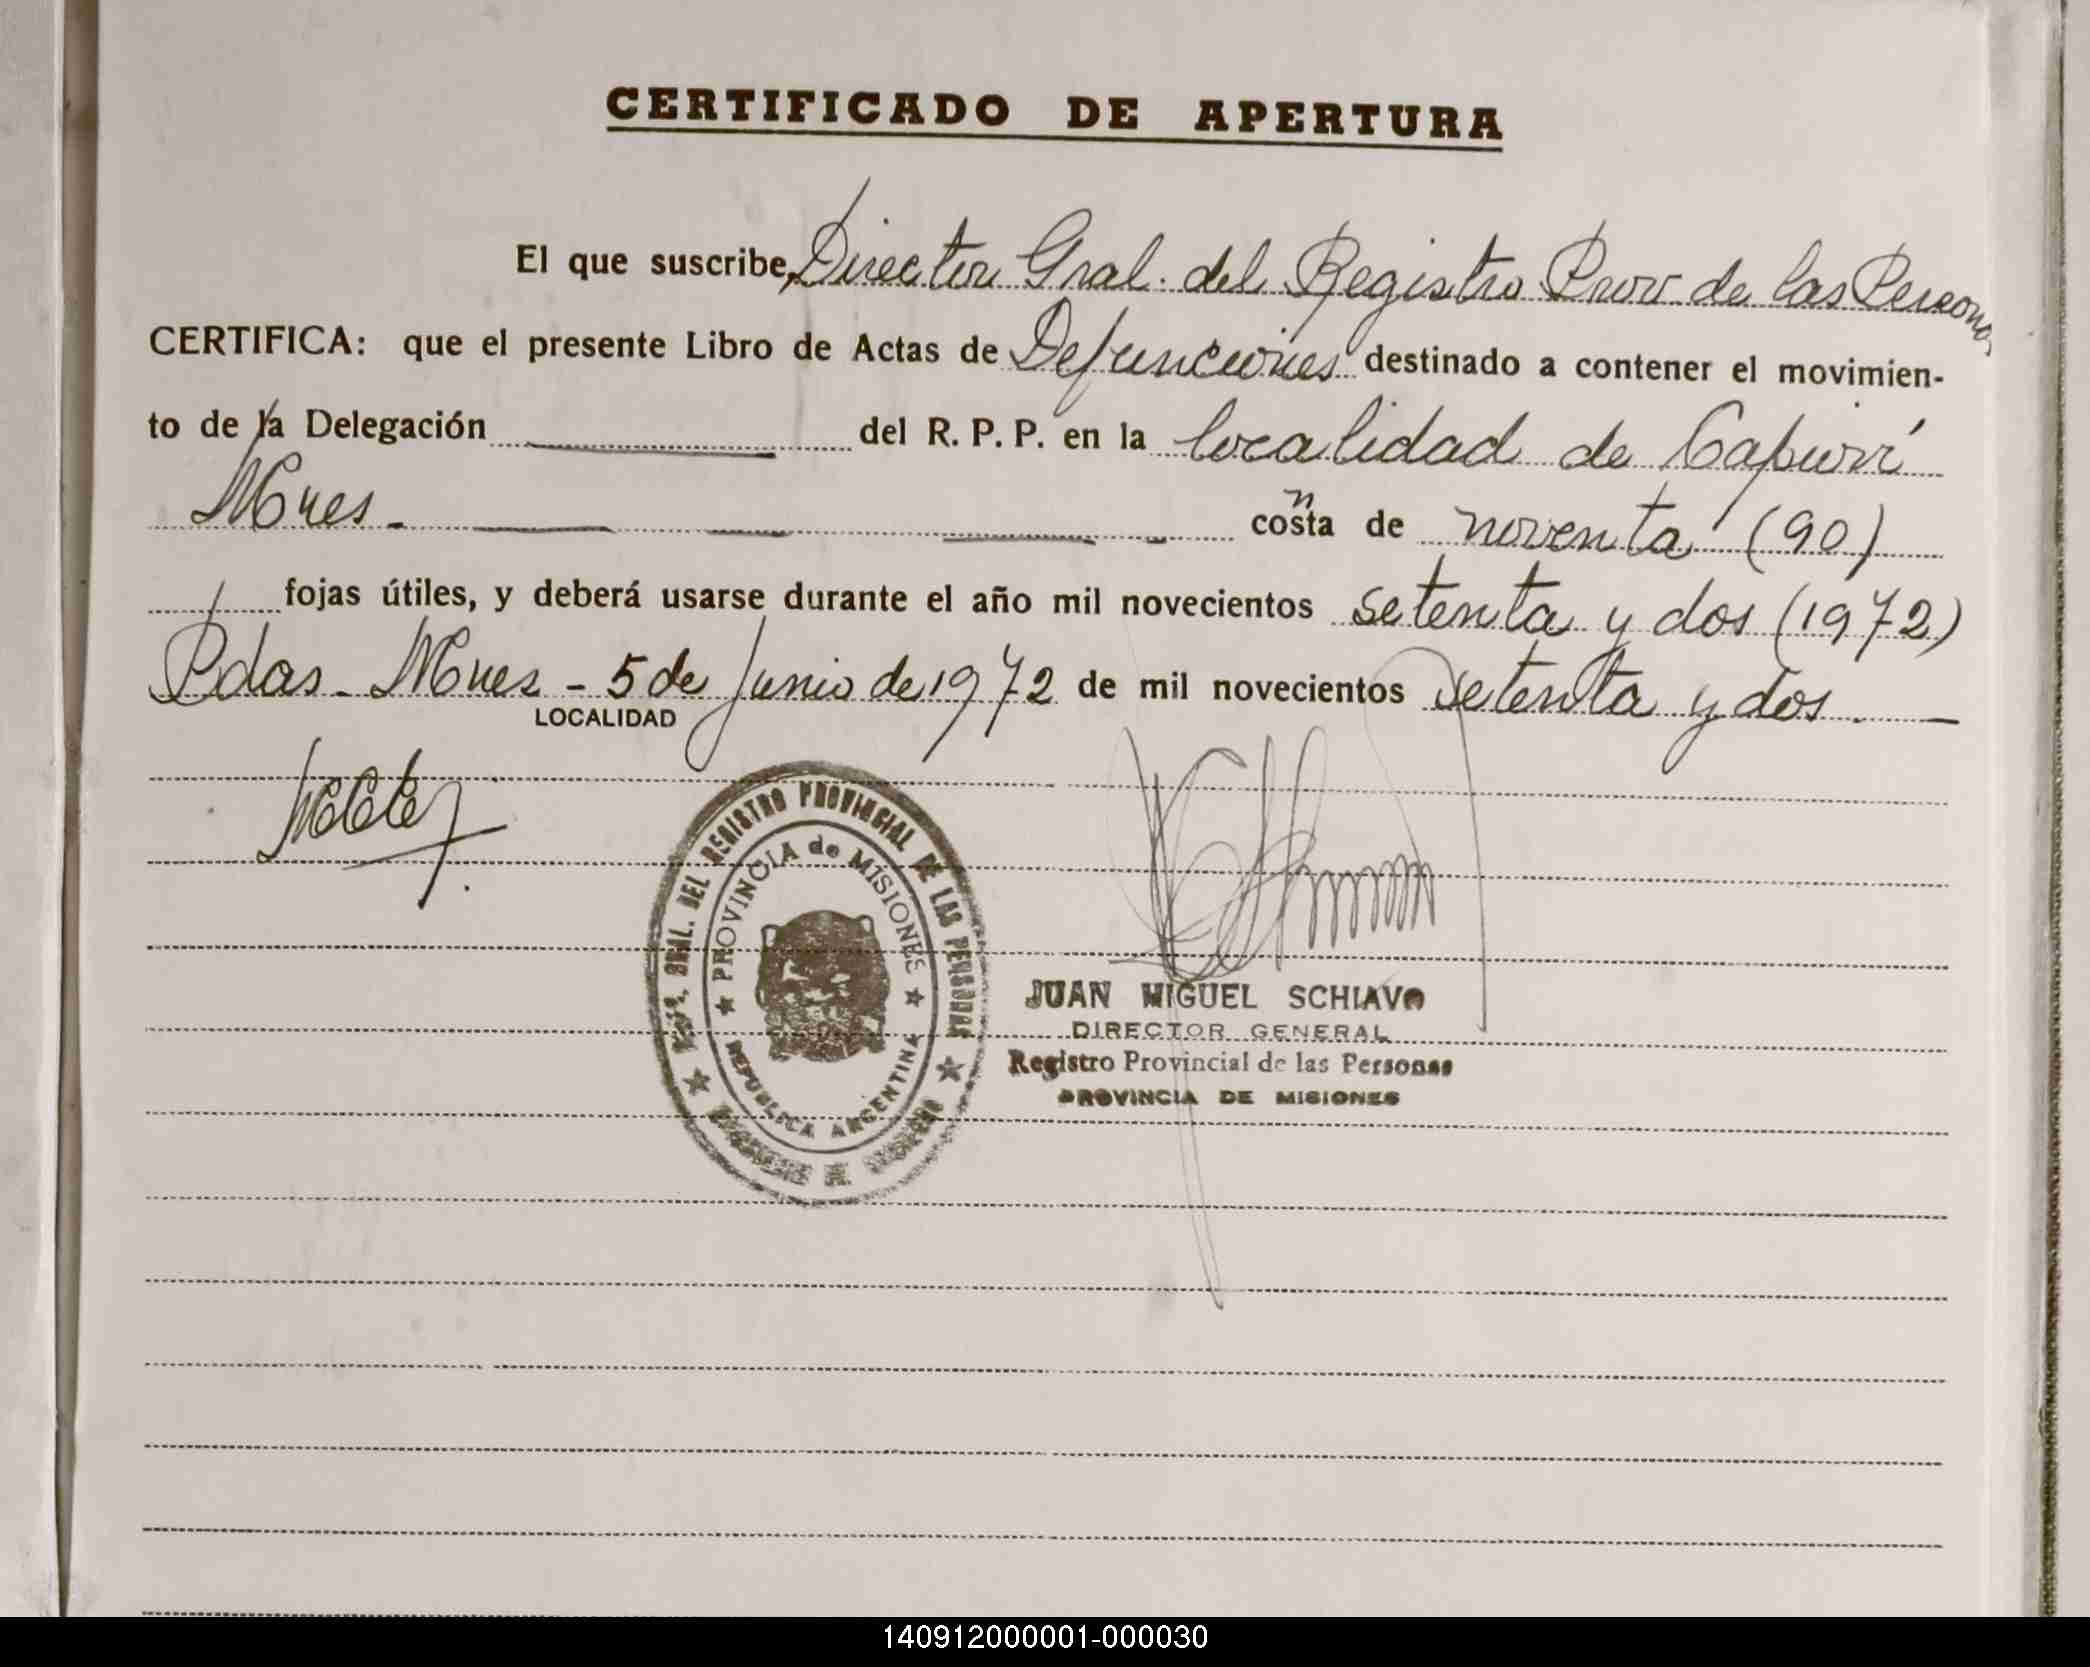 CERTIFICADO DE APERTURA
El que suscribe, Director Gral. del Registro Prov de las Personas
CERTIFICA: que el presente Libro de Actas de Defunciones destinado a contener el movimien-
to de la Delegación del R. P. P. en la localidad de Capioví
Mnes. - consta de noventa (90)
fojas útiles, y deberá usarse durante el año mil novecientos setenta y dos (1972)
Pdas. Mnes - 5 de Junio de 1972 de mil novecientos setenta y dos. -
LOCALIDAD
GRAL. DEL REGISTRO PROVINCIAL DE LAS PERSONAS
PROVINCIA de MISIONES
REPUBLICA ARGENTINA
JUAN MIGUEL SCHIAVO
DIRECTOR GENERAL
Registro Provincial de las Personas
PROVINCIA DE MISIONES
140912000001-000030